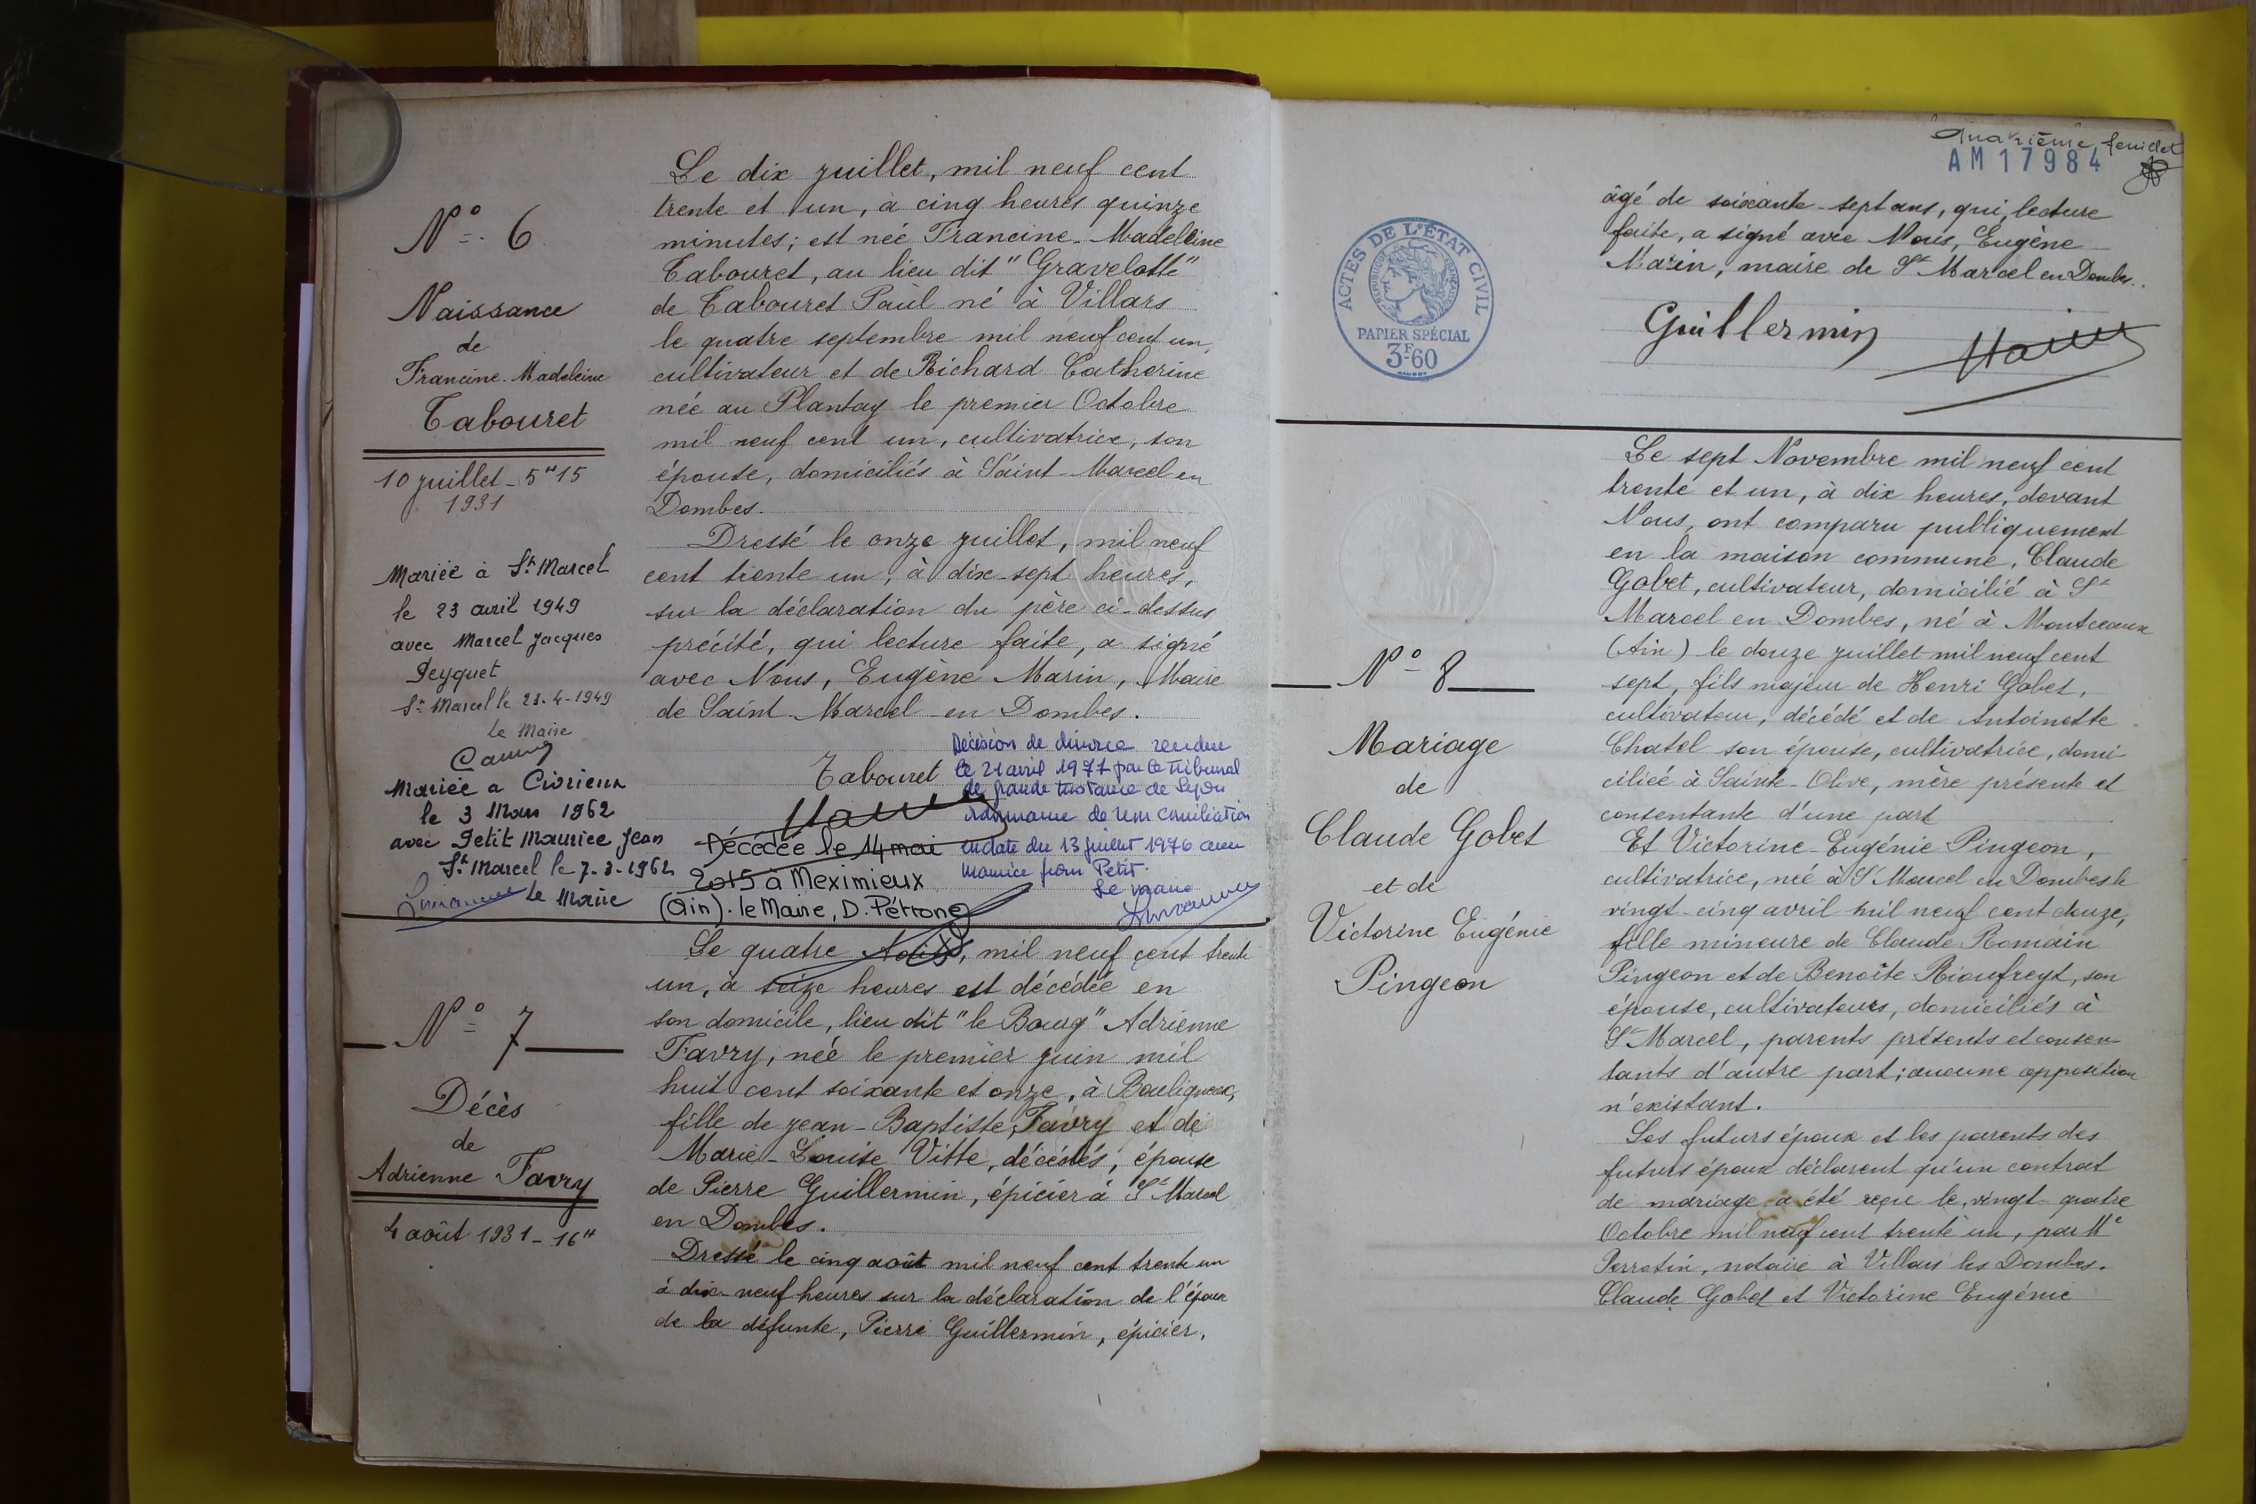 N° 6
Naissance
de
Francine-Madeleine
Tabouret
10 juillet - 5H15
1931
Mariée à St Marcel
le 23 avril 1949
avec Marcel Jacques
Peyquet
St Marcel le 23-4-1949
le Maire
Mariée à Civrieux
le 3 Mars 1962
avec Petit Maurice Jean
St Marcel le 7-3-1962
le Maire
Le dix juillet, mil neuf cent
trente et un, à cinq heures quinze
minutes; est née Francine-Madeleine
Tabouret, au lieu dit "Gravelotte"
de Tabouret Paul né à Villars
le quatre septembre mil neuf cent un,
cultivateur et de Richard Catherine
née au Plantay le premier Octobre
mil neuf cent un, cultivatrice, son
épouse, domiciliés à Saint-Marcel en
Dombes.
Dressé le onze juillet, mil neuf
cent trente un, à dix-sept heures,
sur la déclaration du père ci-dessus
précité, qui lecture faite, a signé
avec Nous, Eugène Marin, Maire
de Saint-Marcel-en Dombes.
Tabouret
Décision de divorce rendue
le 21 avril 1977 par le Tribunal
de grande Instance de Lyon
ordonnance de non conciliation
en date du 13 juillet 1976 avec
Maurice Jean Petit.
Le Maire
Décédée le 14 mai
2015 à Meximieux
(Ain). le Maire, D. Pétrone
N° 7
Décès
de
Adrienne Favry
4 août 1931 - 16H
Le quatre Août, mil neuf cent trente
un, à seize heures est décédée en
son domicile, lieu dit "le Bourg" Adrienne
Favry, née le premier juin mil
huit cent soixante et onze, à Bouligneux,
fille de Jean-Baptiste Favry et de
Marie-Louise Vitte, décédés, épouse
de Pierre Guillermin, épicier à St Marcel
en Dombes.
Dressé le cinq août mil neuf cent trente un
à dix-neuf heures sur la déclaration de l'époux
de la défunte, Pierre Guillermin, épicier,
Quatrième feuillet
AM17984
ACTES DE L'ÉTAT CIVIL
RÉPUBLIQUE FRANÇAISE
PAPIER SPÉCIAL
3F.60
âgé de soixante-sept ans, qui, lecture
faite, a signé avec Nous, Eugène
Marin, maire de St Marcel en Dombes.
Guillermin
Marin
N° 8
Mariage
de
Claude Gobet
et de
Victorine Eugénie
Pingeon
Le sept Novembre mil neuf cent
trente et un, à dix heures, devant
Nous, ont comparu publiquement
en la maison commune, Claude
Gobet, cultivateur, domicilié à St
Marcel en Dombes, né à Montceaux
(Ain) le douze juillet mil neuf cent
sept, fils majeur de Henri Gobet,
cultivateur, décédé et de Antoinette
Chatel son épouse, cultivatrice, domi
ciliée à Sainte-Olive, mère présente et
consentante d'une part
Et Victorine-Eugénie Pingeon,
cultivatrice, née à St Marcel en Dombes le
vingt-cinq avril mil neuf cent douze,
fille mineure de Claude Romain
Pingeon et de Benoîte Rioufreyt, son
épouse, cultivateurs, domiciliés à
St Marcel, parents présents et consen
tants d'autre part; aucune opposition
n'existant.
Les futurs époux et les parents des
futurs époux déclarent qu'un contrat
de mariage a été reçu le, vingt-quatre
Octobre mil neuf cent trente un, par Me
Perratin, notaire à Villars les Dombes.
Claude Gobet et Victorine Eugénie